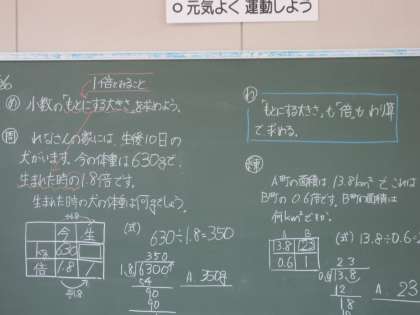 ○元気よく 運動しよう
1倍とみること
め 小数の「もとにする大きさ」を求めよう。
問 れなさんの家には、生後10日の
犬がいます。今の体重は630gで、
生まれた時の1.8倍です。
生まれた時の犬の体重は何gでしょう。
今 生
630
倍 1.8 1
÷1.8
(式) 630÷1.8=350
350
1.8)6300
54
90
90
A 350g
わ
「もとにする大きさ」も「倍」も わり算
で求める。
A町の面積は 13.8km²で これは
B町の 0.6倍です。B町の面積は
何km²ですか。
A B
13.8 23
0.6 1
(式) 13.8÷0.6=2
23
0.6)13.8
12
18
A 23